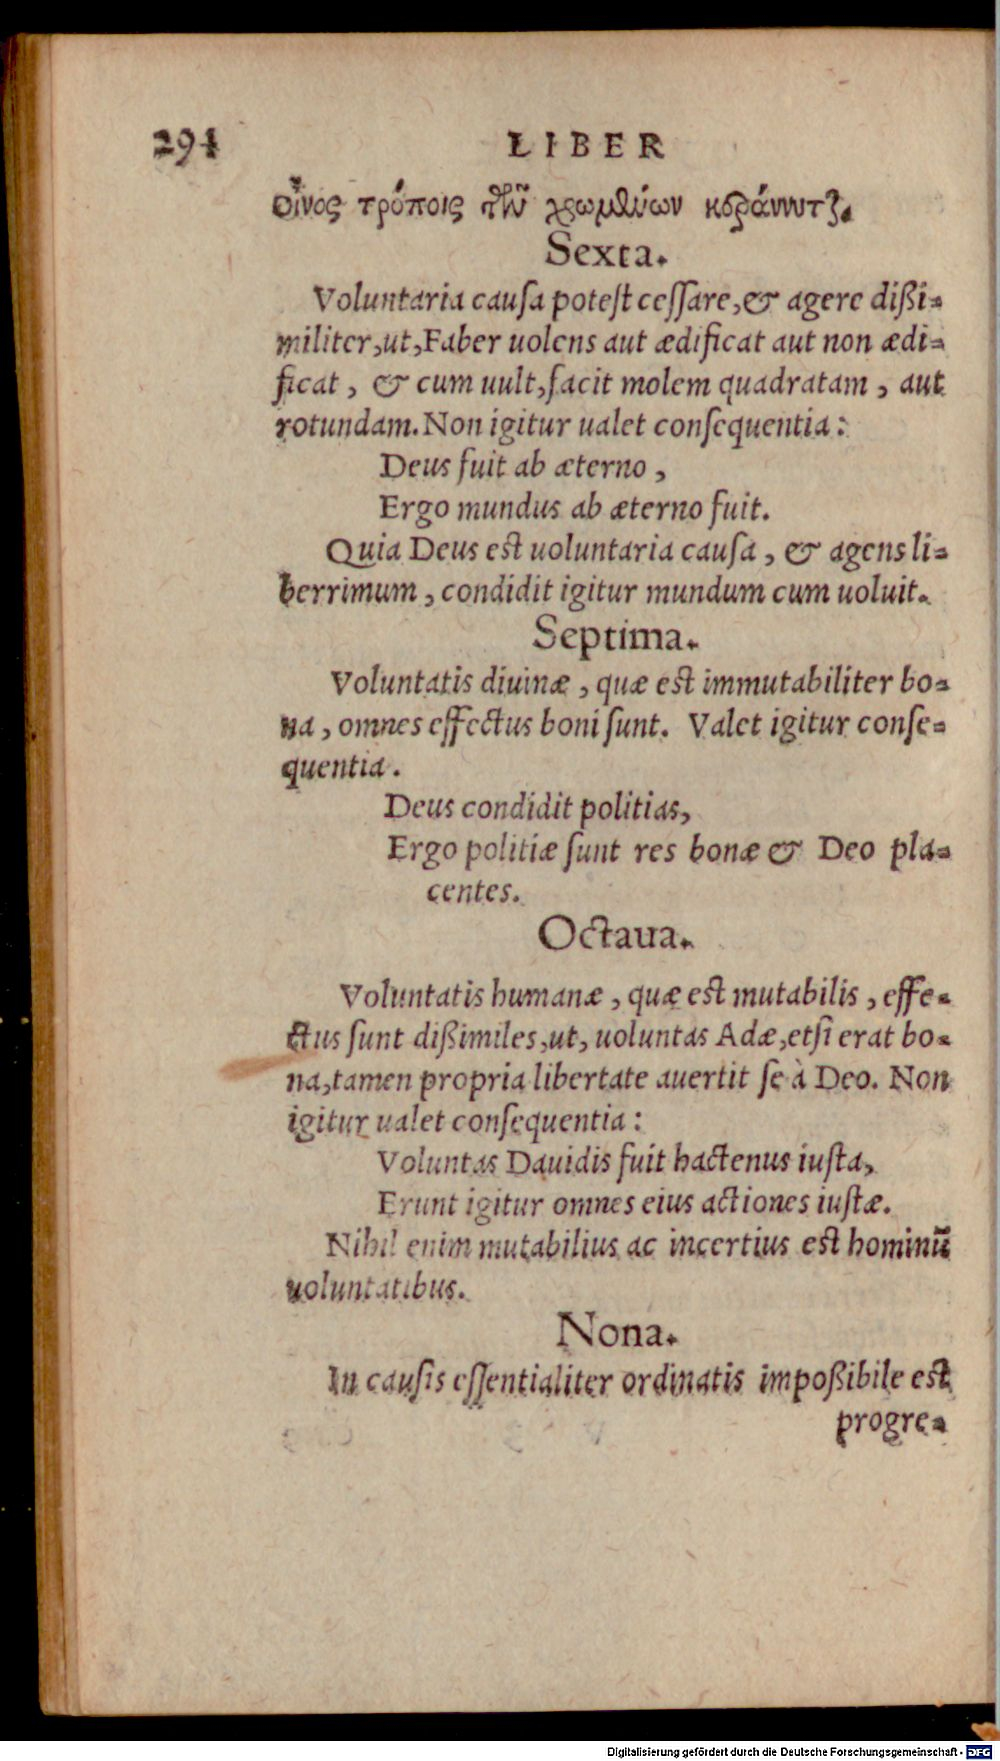 294 LIBER
οἶνος τρόποις τῶν χρωμένων κεράννυται.
Sexta.
Voluntaria cauſa poteſt ceſſare, & agere dißi-
militer, ut, Faber uolens aut ædificat aut non ædi-
ficat, & cum uult, facit molem quadratam, aut
rotundam. Non igitur ualet conſequentia:
Deus fuit ab æterno,
Ergo mundus ab æterno fuit.
Quia Deus est uoluntaria cauſa, & agens li-
berrimum, condidit igitur mundum cum uoluit.
Septima.
Voluntatis diuinæ, quæ est immutabiliter bo-
na, omnes effectus boni ſunt. Valet igitur conſe-
quentia.
Deus condidit politias,
Ergo politiæ ſunt res bonæ & Deo pla-
centes.
Octaua.
Voluntatis humanæ, quæ est mutabilis, effe-
ctus ſunt dißimiles, ut, uoluntas Adæ, etſi erat bo-
na, tamen propria libertate auertit ſe à Deo. Non
igitur ualet conſequentia:
Voluntas Dauidis fuit hactenus iuſta,
Erunt igitur omnes eius actiones iuſtæ.
Nihil enim mutabilius ac incertius est hominũ
uoluntatibus.
Nona.
In cauſis eſſentialiter ordinatis impoßibile est
progre-
Digitalisierung gefördert durch die Deutsche Forschungsgemeinschaft - DFG